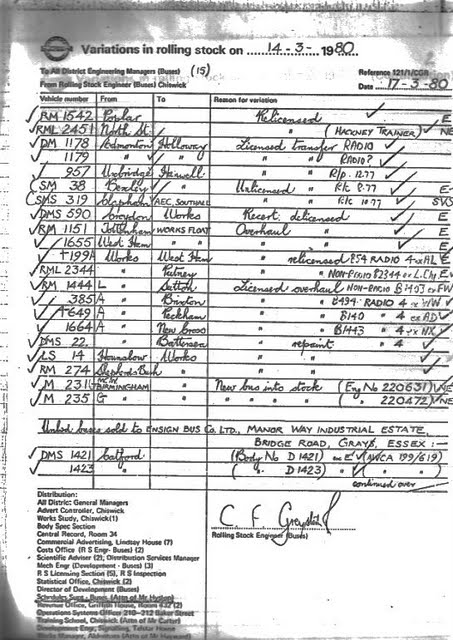 Variations in rolling stock on 14-3-1980
To All District Engineering Managers (Buses) (15)
Reference 121/1/CGR
From Rolling Stock Engineer (Buses) Chiswick
Date 17-3-80
Vehicle number From To Reason for variation
RM 1542 Poplar Relicensed E
RML 2451 North St. " (HACKNEY TRAINER) NE
DM 1178 Edmonton Holloway Licensed transfer RADIO
1179 " " " " RADIO?
957 Uxbridge Hanwell " " R/p. 12.77
SM 38 Bexley Unlicensed F.tc 8.77 E
SMS 319 Clapham AEC, SOUTHALL " F.tc 10.77
DMS 590 Croydon Works Recert. delicensed
RM 1151 Tottenham WORKS FLOAT Overhaul
1655 West Ham " "
1199A Works West Ham " relicensed B54 RADIO
RML 2344 " Putney " " NON-RADIO B2344
RM 1444 L " Sutton Licensed overhaul NON-RADIO B1403 ex FW
385A " Brixton " " B494 RADIO 4 x WW
649 A " Peckham " " B140 " 4 ex AD
1664 A " New Cross " " B1443 " 4 x NX
DMS 22. " Battersea " repaint " 4
LS 14 Hounslow Works "
RM 274 Shepherds Bush " "
M 231 MCW BIRMINGHAM New bus into stock (Eng No 220631) NE
M 235 G " " " " ( " 220472) NE
Unlicd buses sold to ENSIGN BUS Co. LTD., MANOR WAY INDUSTRIAL ESTATE,
BRIDGE ROAD, GRAYS, ESSEX :-
DMS 1421 Catford (Body No D 1421) ex E (AWCA 199/619)
1423 " ( " D 1423) " ( " )
continued over
Distribution:
All District: General Managers
Advert Controller, Chiswick
Works Study, Chiswick(1)
Body Spec Section
Central Record, Room 34
Commercial Advertising, Lindsay House (7)
Costs Office (R S Engr- Buses) (2)
Scientific Adviser (2); Distribution Services Manager
Mech Engr (Development - Buses) (3)
R S Licensing Section (5), R S Inspection
Statistical Office, Chiswick (2)
Director of Development (Buses)
Schedules Supt - Buses (Attn of Mr Hyston)
Revenue Office, Griffith House, Room 432 (2)
Operations Systems Officer 210-212 Baker Street
Training School, Chiswick (Attn of Mr Carter)
Development Engr, Signalling, Telstar House
Works Manager, Aldenham (Attn of Mr Hayward)
Rolling Stock Engineer (Buses)